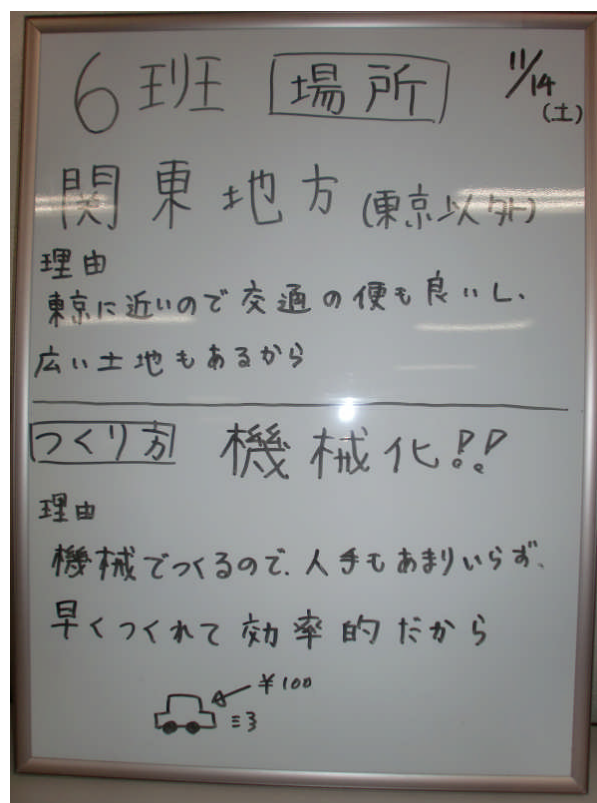 6班 場所 11/14
(土)
関東地方(東京以外)
理由
東京に近いので交通の便も良いし、
広い土地もあるから
つくり方 機械化!!
理由
機械でつくるので、人手もあまりいらず、
早くつくれて効率的だから
¥100